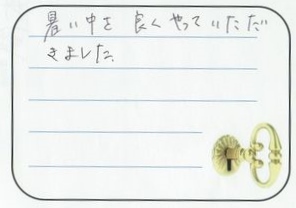 暑い中を 良くやっていただ
きました。